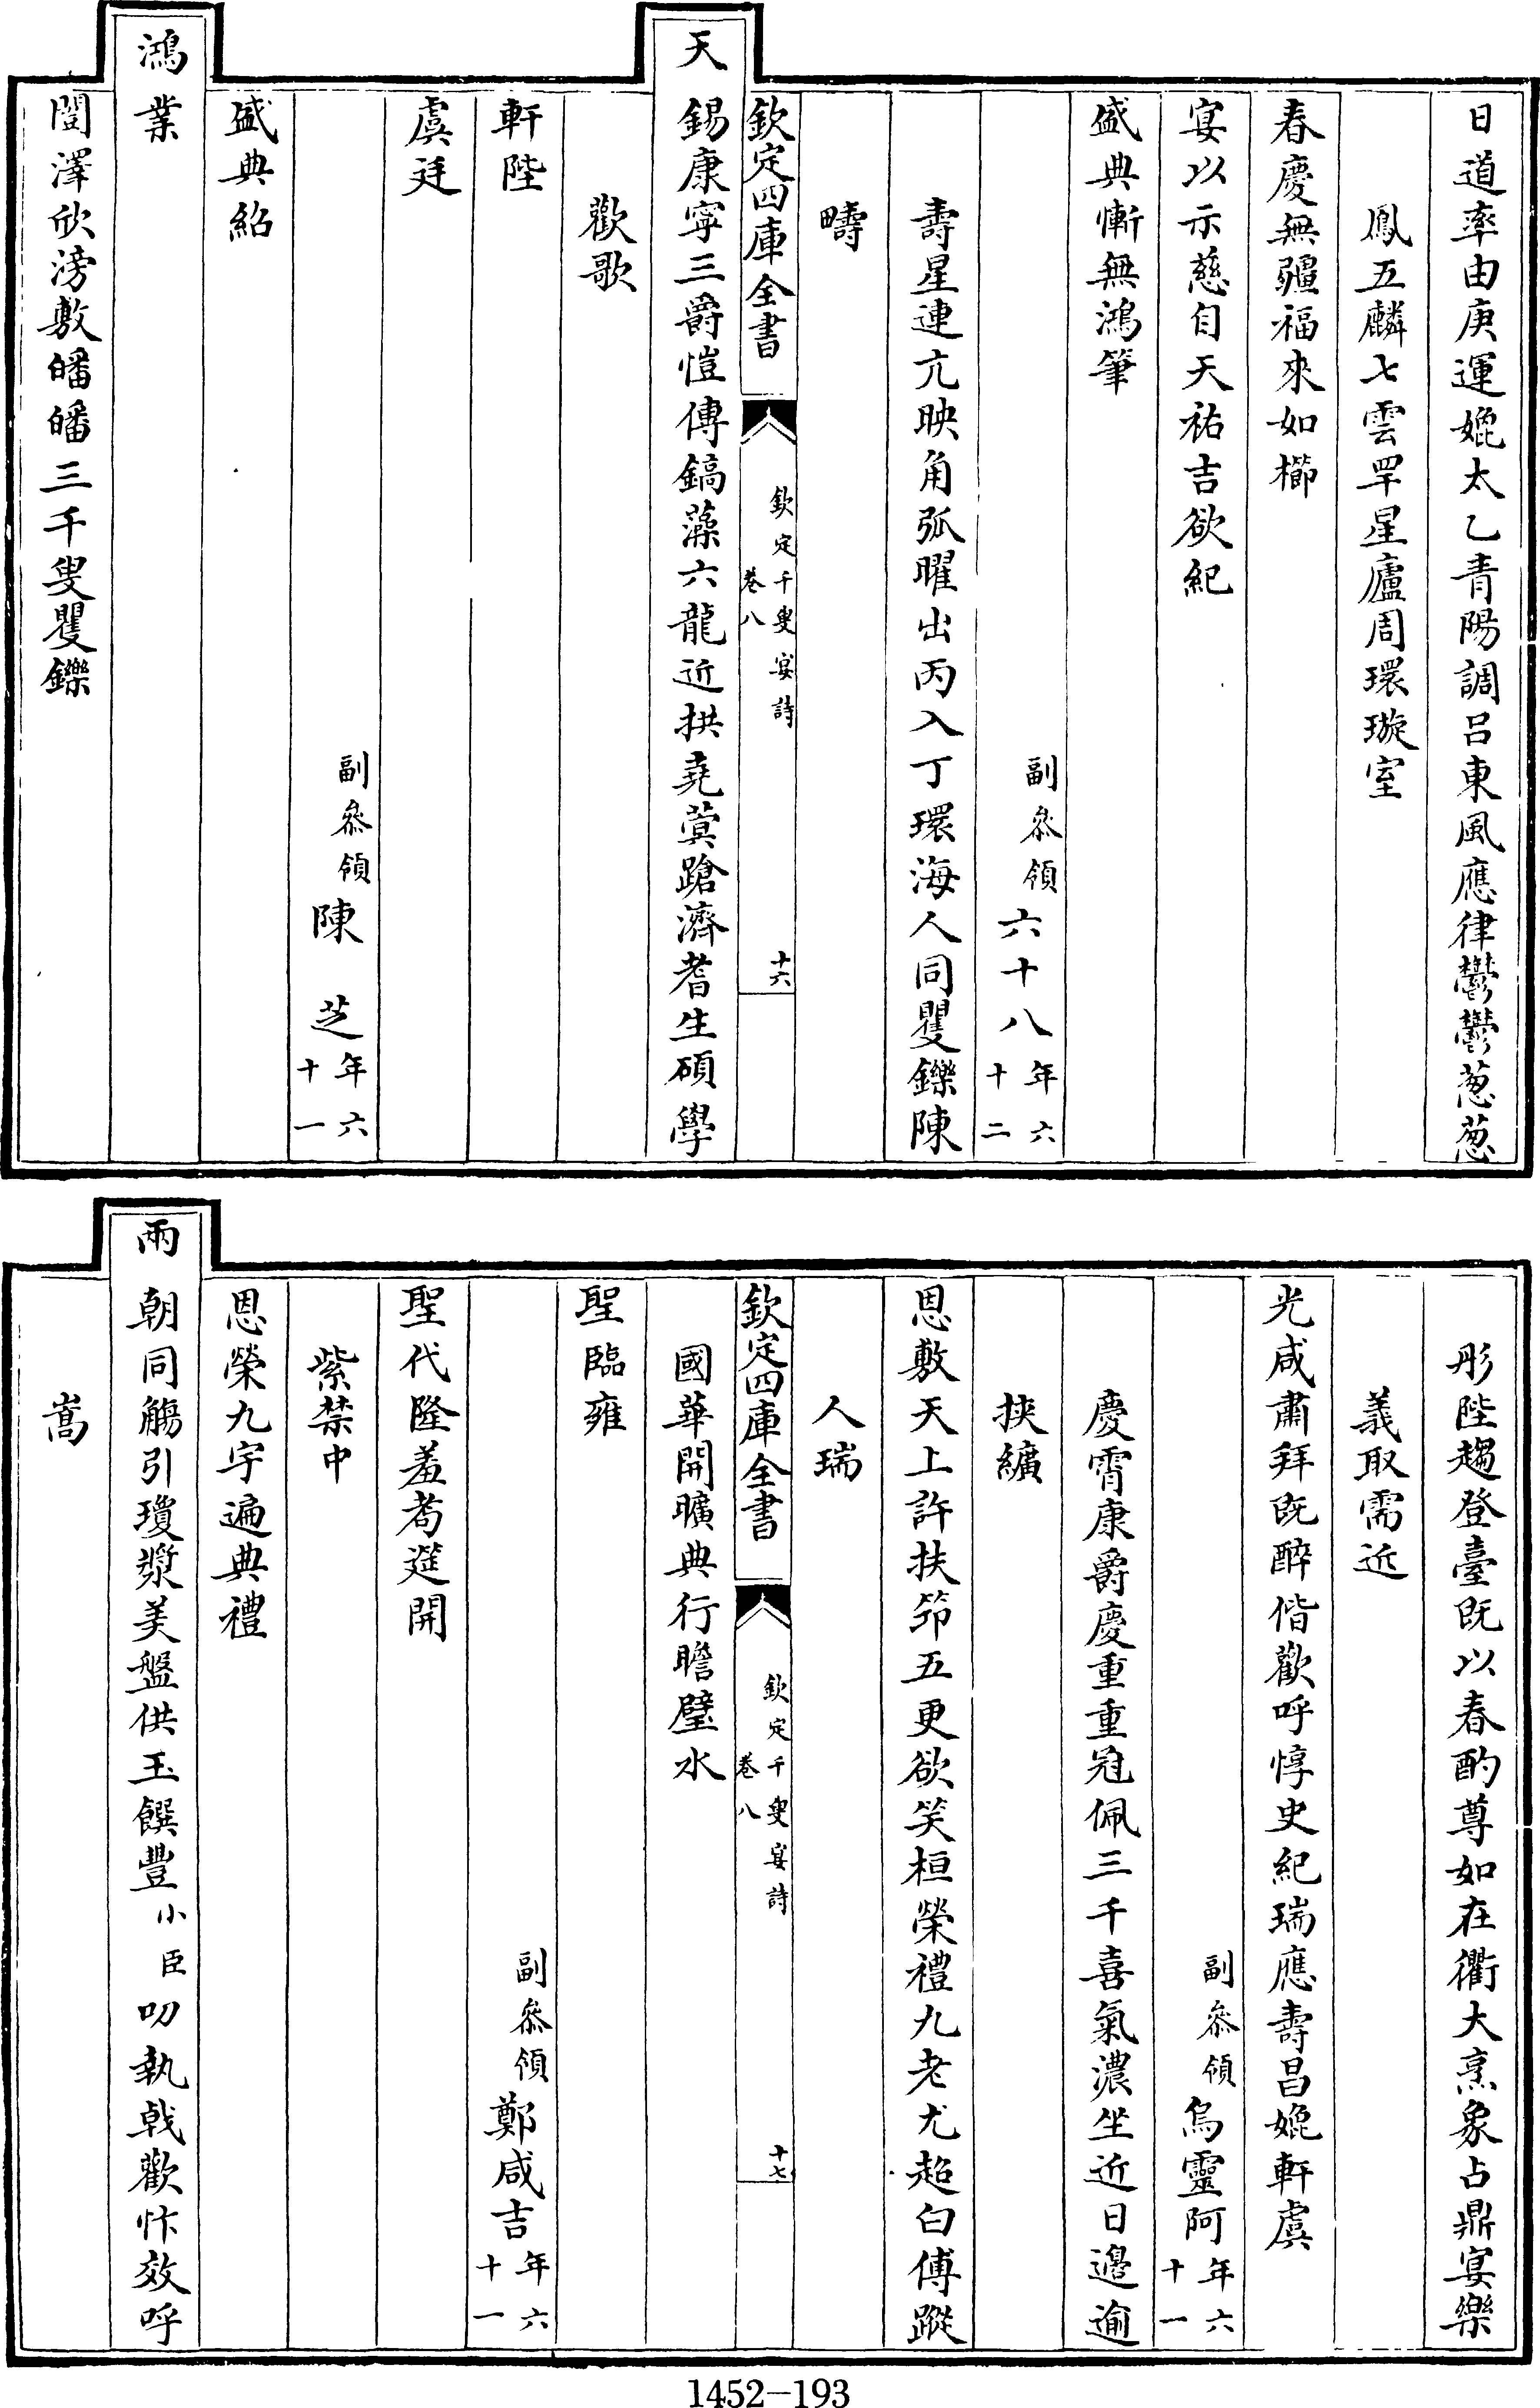 日道率由庚運媲太乙青陽調呂東風應律鬱鬱葱葱
鳳五麟七雲罕星廬周環璇室
春慶無疆福來如櫛
宴以示慈自天祐吉欲紀
盛典慚無鴻筆
副叅領六十八年六十二
壽星連亢映角弧曜出丙入丁環海人同矍鑠陳
疇
欽定四庫全書
欽定千叟宴詩
卷八
十六
天錫康寧三爵愷傳鎬藻六龍近拱堯蓂蹌濟耆生碩學
歡歌
軒陛
虞廷
副叅領陳芝年六十一
盛典紹
鴻業
闓澤欣滂敷皤皤三千叟矍鑠
彤陛趨登臺既以春酌尊如在衢大烹象占鼎宴樂
義取需近
光咸肅拜既醉偕歡呼惇史紀瑞應壽昌媲軒虞
副叅領烏靈阿年六十一
慶霄康爵慶重重冠佩三千喜氣濃坐近日邊逾
挾纊
恩敷天上許扶笻五更欲笑桓榮禮九老尤超白傅蹤
人瑞
欽定四庫全書
欽定千叟宴詩
卷八
十七
國華開曠典行瞻璧水
聖臨雍
副叅領鄭咸吉年六十一
聖代隆羞耇筵開
紫禁中
恩榮九宇遍典禮
兩朝同觴引瓊漿美盤供玉饌豐小臣叨執戟歡忭效呼
嵩
1452-193